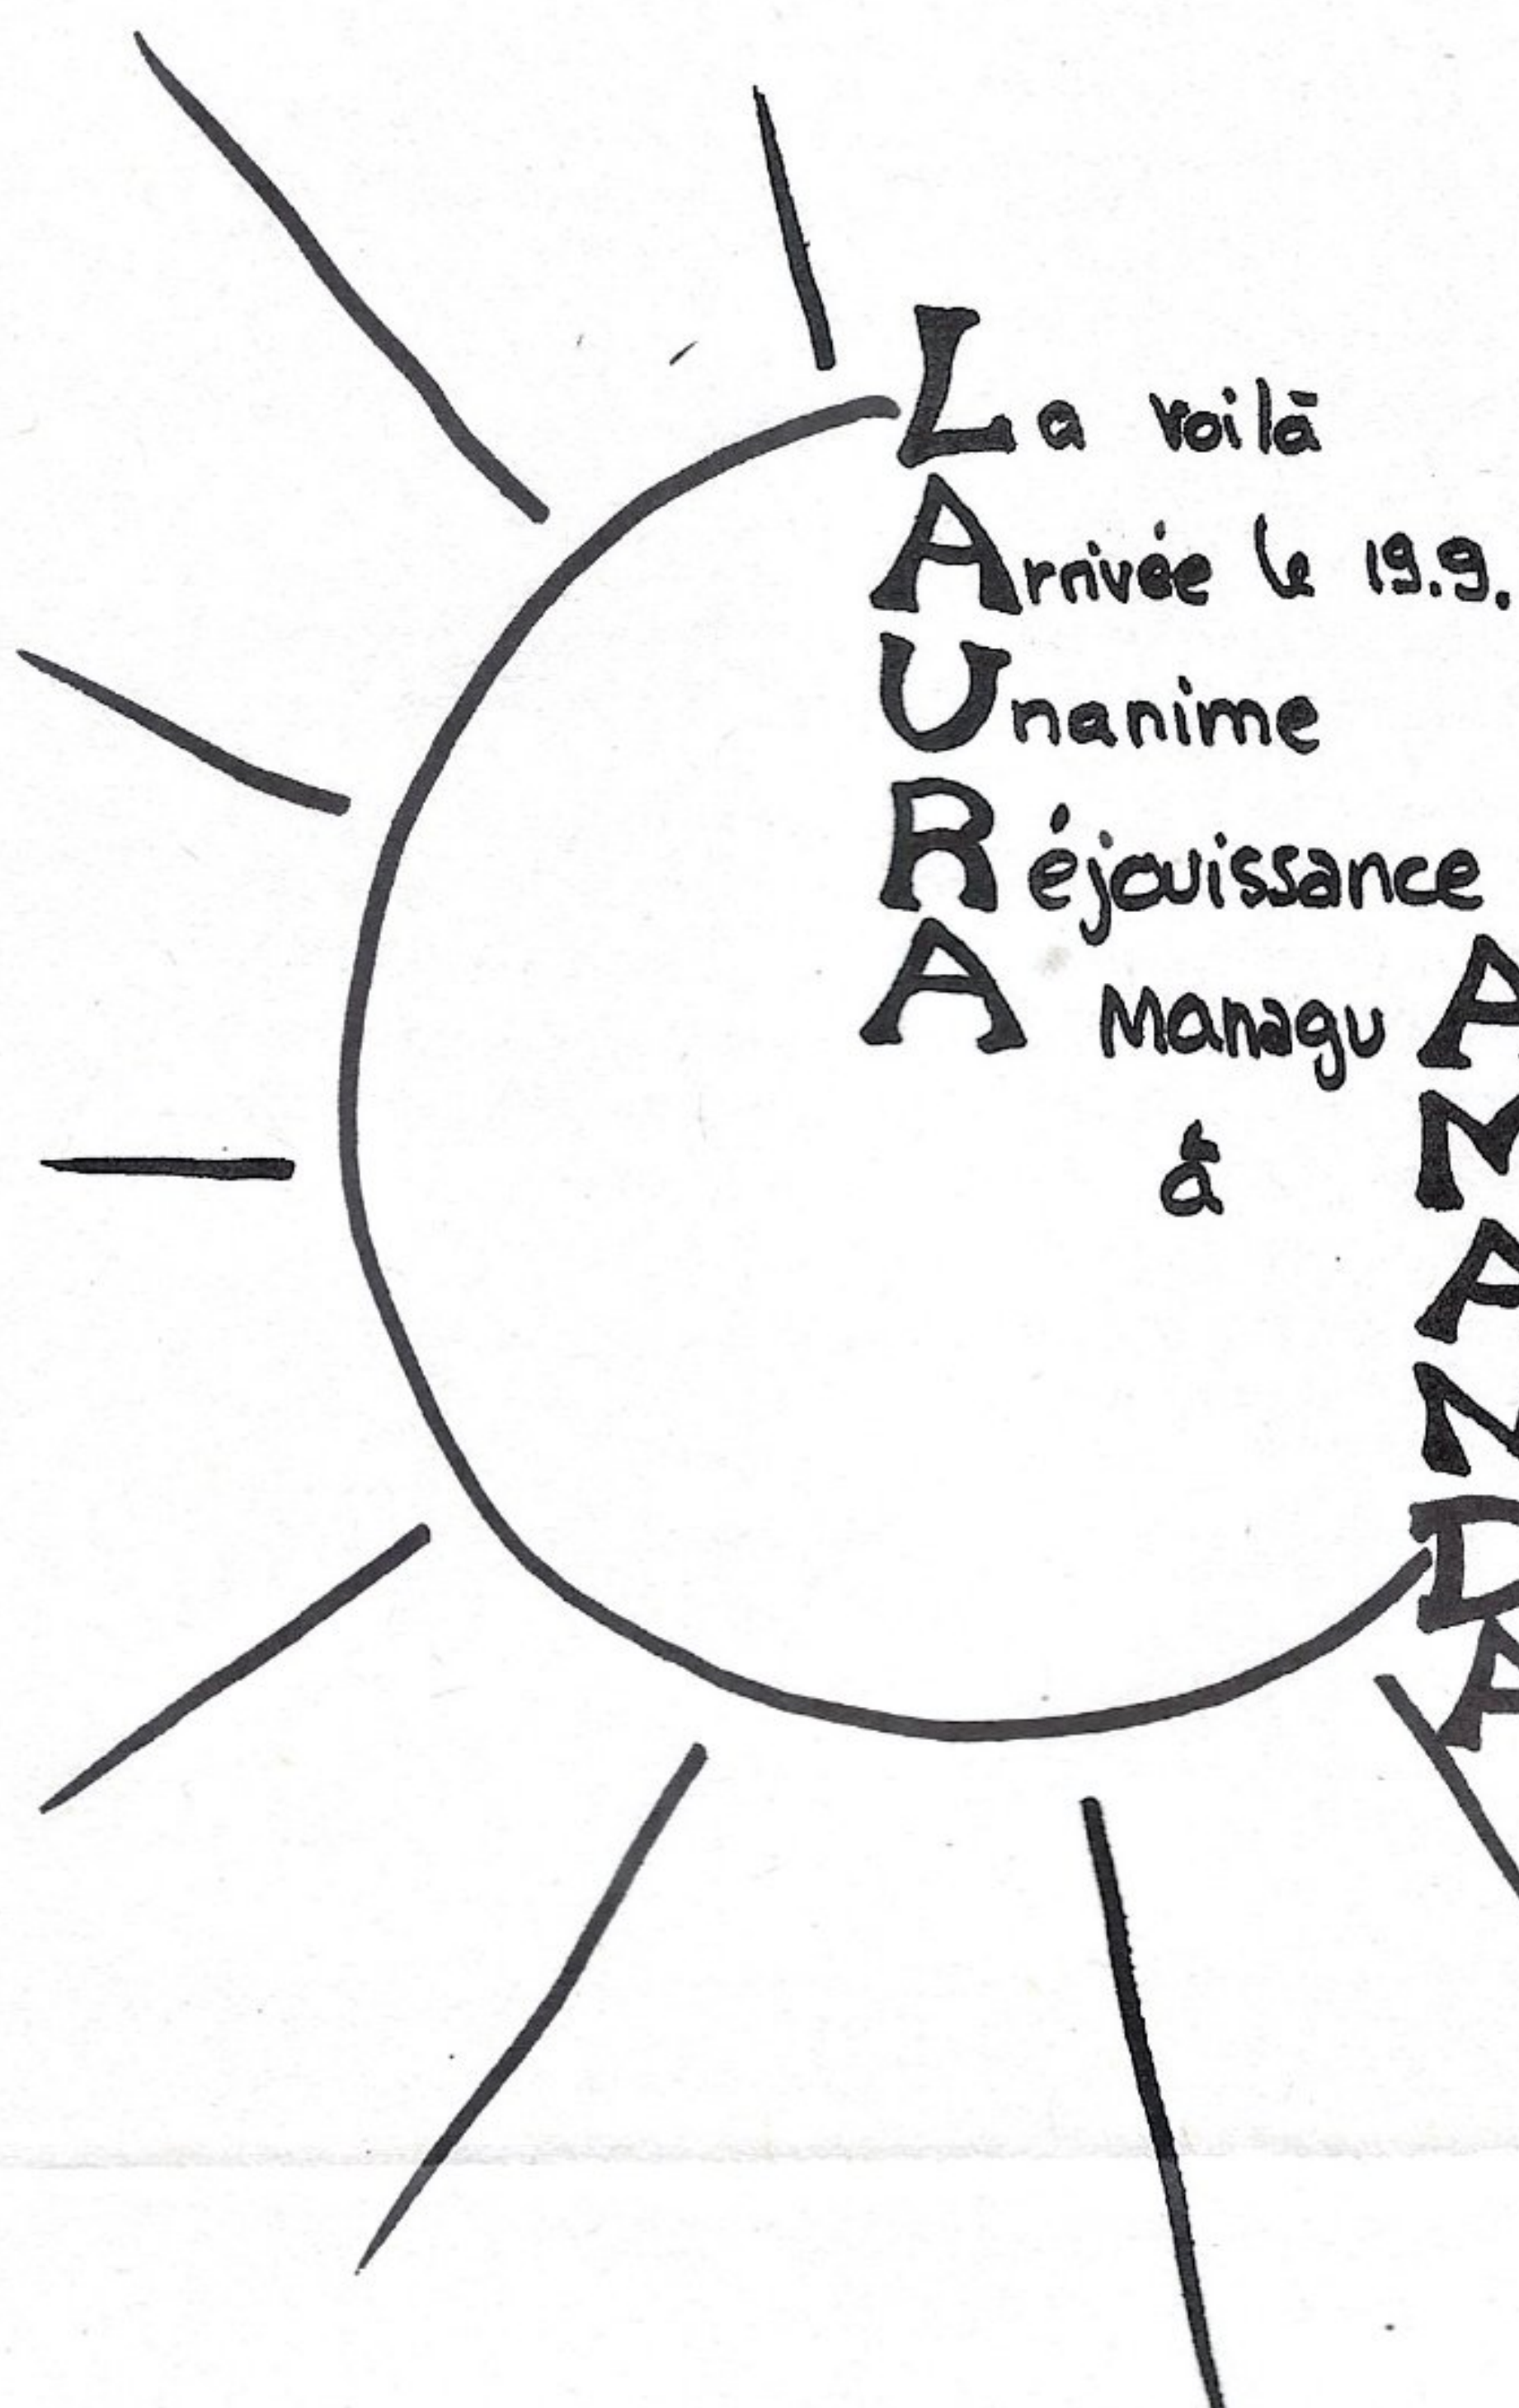 La voilà
Arrivée le 19.9.
Unanime
Réjouissance
A Managu A
à M
A
N
D
A